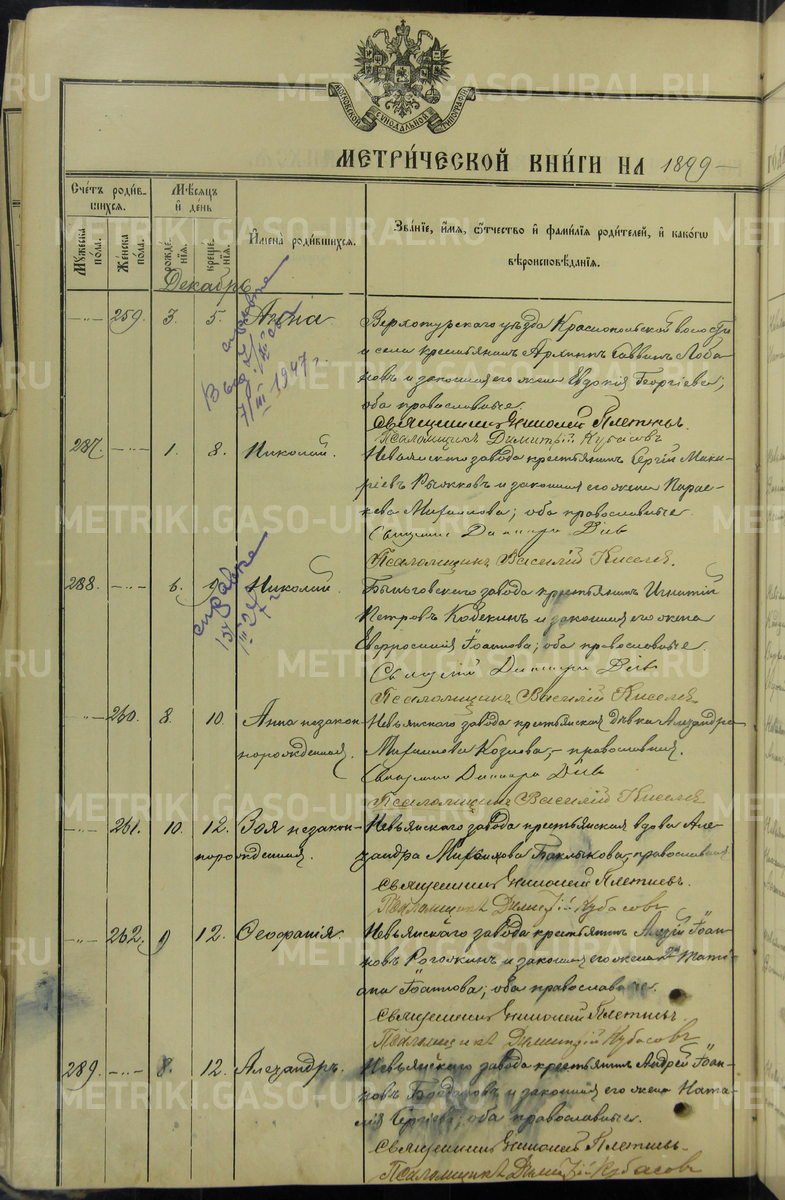 МОСКОВСКОЙ СѴНОДАЛЬНОЙ ТИПОГРАФІИ
МЕТРИ́ЧЕСКОЙ КНИ́ГИ НА 1899
Сче́тъ роди́в-
шихся.
Му́жеска по́ла.
Же́нска по́ла.
Мѣ́сяцъ
и́ де́нь
рожде́нія.
креще́нія.
И́мена̀ роди́вшихся.
Зва́ніе, и́мя, ѻ҆́тчество и́ фами́лія роди́телей, и́ како́гѡ
вѣроисповѣ́данія.
Декабрь
259. 3. 5. Анна
Верхотурскаго уѣзда Краснопольской волости
и села крестьянинъ Саввинъ Лоба-
новъ и законная его жена Евдокія Георгіева;
оба православные.
Священникъ Николай Плетневъ.
Псаломщикъ Димитрій Кубасовъ
III 1947 г.
287. 1. 8. Николай.
Невьянскаго завода крестьянинъ Сергій Мака-
ріевъ Рыжковъ и законная его жена Параске-
ва Михаилова; оба православные.
Псаломщикъ Василій Киселевъ.
справка
288. 6. 9. Николай.
Быньговскаго завода крестьянинъ Игнатій
Петровъ Кобекинъ и законная его жена
Іоаннова; оба православные.
Псаломщикъ Василій Киселевъ
260. 8. 10. Анна незакон-
норожденная.
Невьянскаго завода крестьянская дѣвка Александра
Михаилова Козлова, православная.
Псаломщикъ Василій Киселевъ
261. 10. 12. Зоя незакон-
норожденная.
Невьянскаго завода крестьянская вдова Але-
ксандра Михаилова православная
Священникъ Николай Плетневъ.
Псаломщикъ Димитрій Кубасовъ
262. 9 12. Ѳеофанія.
Невьянскаго завода крестьянинъ Іоан-
новъ Рогожкинъ и законная его жена Тати-
ана Іоаннова; оба православные.
Священникъ Николай Плетневъ.
Псаломщикъ Димитрій Кубасовъ
289. 8. 12. Александръ.
Невьянскаго завода крестьянинъ Андрей Іоан-
новъ и законная его жена Ната-
лія Сергіева; оба православные.
Священникъ Николай Плетневъ.
Псаломщикъ Димитрій Кубасовъ
METRIKI.GASO-URAL.RU